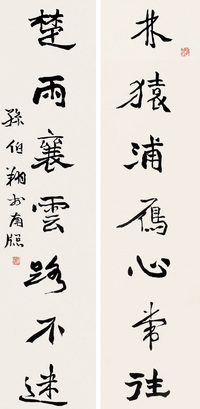 林猿浦鴈心常往
楚雨襄雲路不迷
孫伯翔於南牕